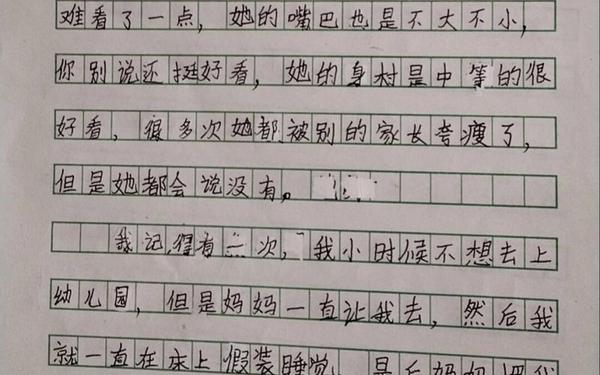 难看了一点，她的嘴巴也是不大不小，
你别说还挺好看，她的身材是中等的很
好看，很多次她都被别的家长夸瘦了，
但是她都会说没有。
我记得有一次，我小时候不想去上
幼儿园，但是妈妈一直让我去，然后我
就一直在床上假装睡觉，最后妈妈把我